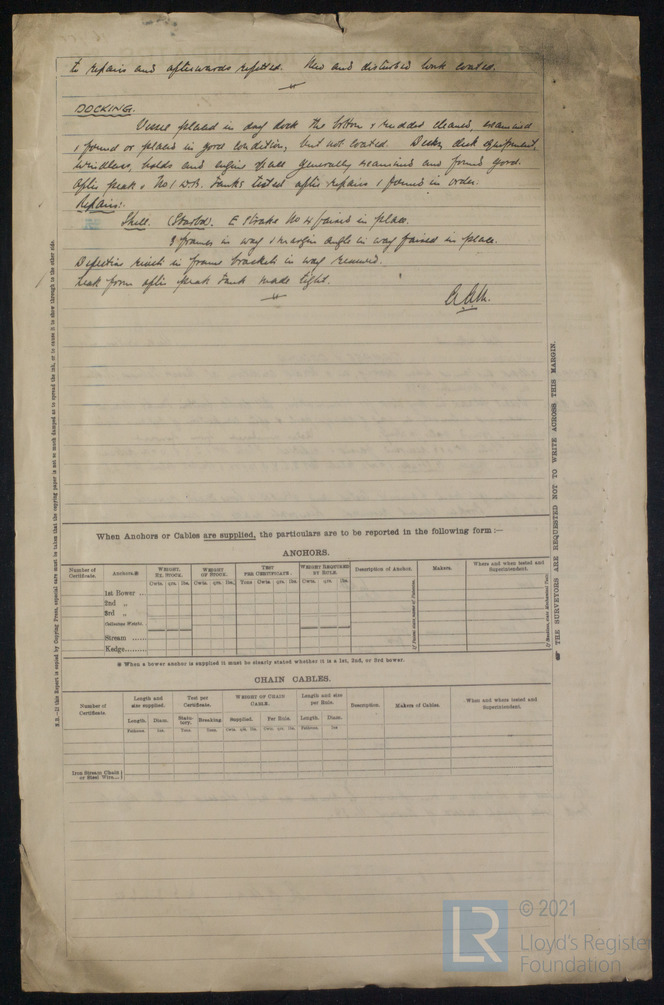 to repairs and afterwards refitted. New and disturbed work coated.
DOCKING.
Vessel placed in dry dock the bottom & rudder cleaned, examined
& found or placed in good condition, but not coated. Decks, deck equipment,
windlass, holds and engine space generally examined and found good.
After peak & No 1 D.B. Tanks tested after repairs & found in order.
Repairs:-
Shell. (Starbd). E Strake No 4 faired in place.
3 frames in way & margin angle in way faired in place.
Defective rivets in frame brackets in way renewed.
Leak from after peak tank made tight.
N.B.—If this Report is copied by Copying Press, especial care must be taken that the copying paper is not so much damped as to spread the ink, or to cause it to show through to the other side.
THE SURVEYORS ARE REQUESTED NOT TO WRITE ACROSS THIS MARGIN.
When Anchors or Cables are supplied, the particulars are to be reported in the following form :—
ANCHORS.
Number of Certificate. Anchors.* WEIGHT. EX. STOCK. WEIGHT OF STOCK. TEST PER CERTIFICATE. WEIGHT REQUIRED BY RULE. Description of Anchor. Makers. Where and when tested and Superintendent.
Cwts. qrs. lbs. Cwts. qrs. lbs. Tons Cwts. qrs. lbs. Cwts. qrs. lbs.
1st Bower ..
2nd „
3rd „
(Collective Weight)
Stream ......
Kedge.........
* When a bower anchor is supplied it must be clearly stated whether it is a 1st, 2nd, or 3rd bower.
CHAIN CABLES.
Number of Certificate. Length and size supplied. Test per Certificate. WEIGHT OF CHAIN CABLE. Length and size per Rule. Description. Makers of Cables. When and where tested and Superintendent.
Length. Diam. Statutory. Breaking Supplied. Per Rule. Length. Diam.
Fathoms. Ins. Tons. Tons. Cwts. qrs. lbs. Cwts. qrs. lbs. Fathoms. Ins
Iron Stream Chain or Steel Wire...
LR
© 2021
Lloyd's Register
Foundation